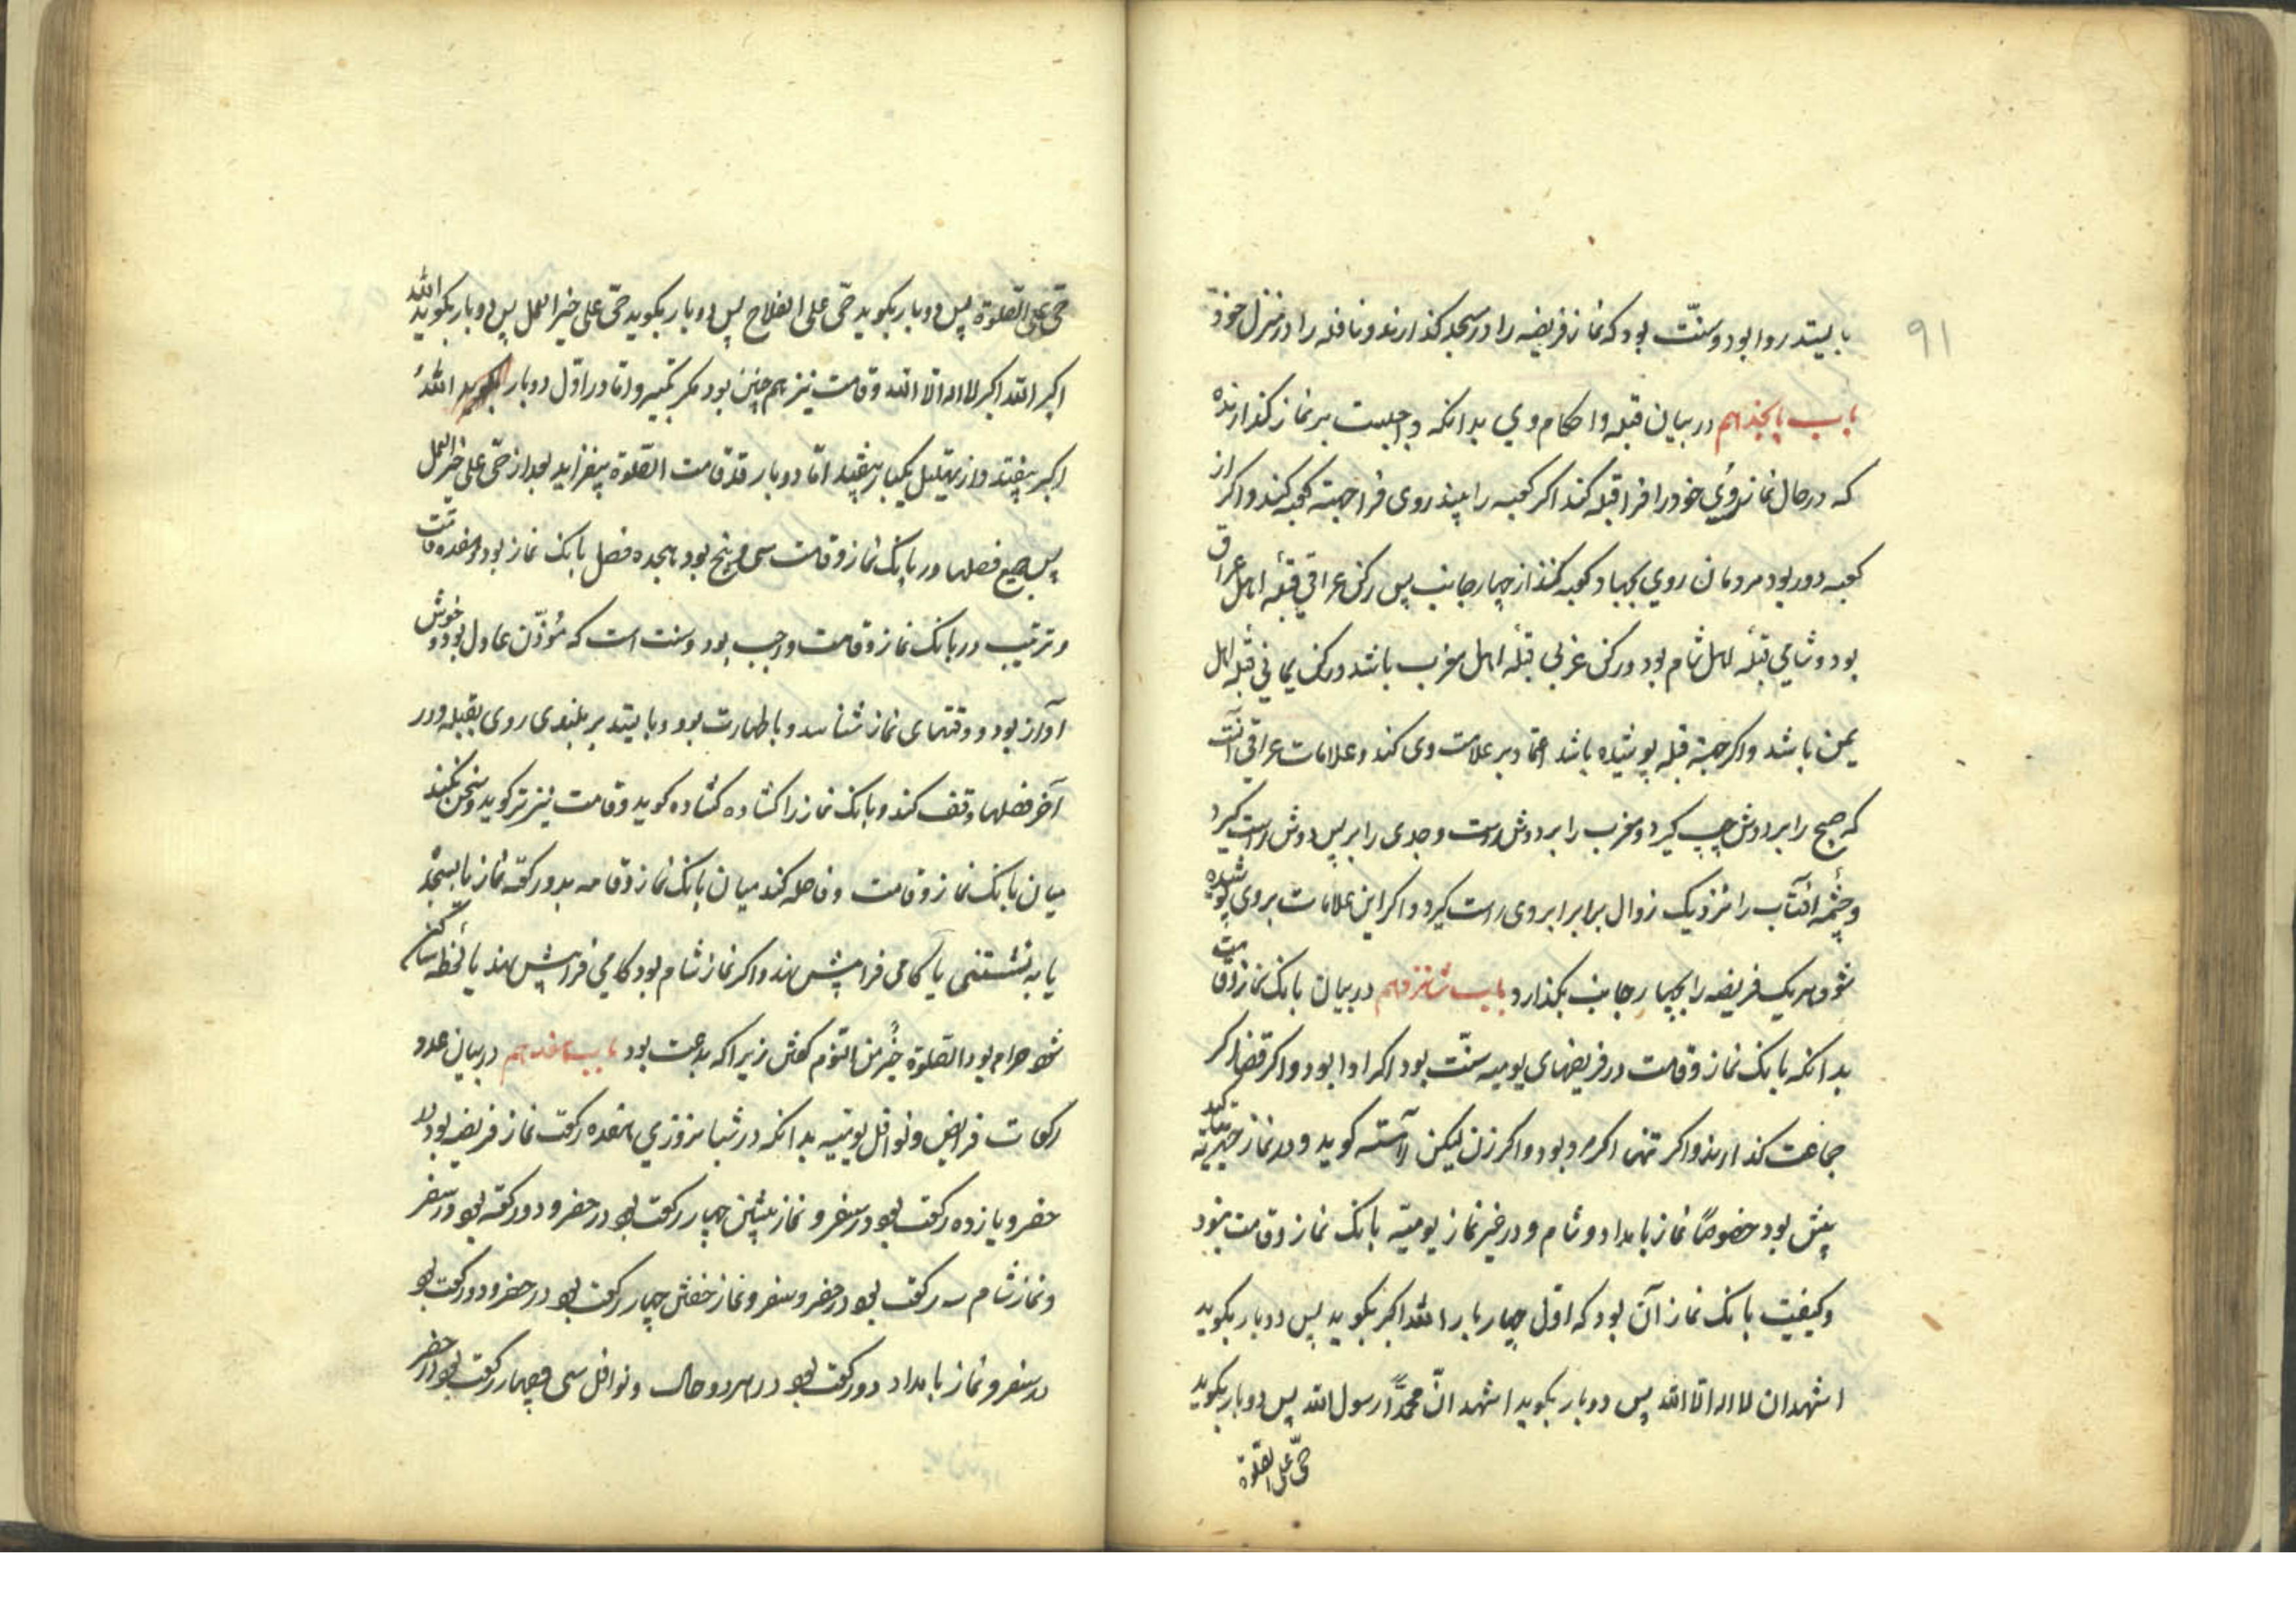 ۹۱
بایستد روا بود و سنّت بود که نماز فریضه را در مسجد کذارند و نافله را در منزل خود
باب پانجذهم در بیان قبله و احکام وی بدانکه واجبست بر نماز کذارنده
که در حال نماز روی خود را فرا قبله کند اکر کعبه را بیند روی فرا جهته کعبه کند و اکر از
کعبه دور بود مردمان روی بجهاد کعبه کنند از چهار جانب پس رکن عراقی قبلهٔ اهل عراق
بود و شامی قبلهٔ اهل شام بود و رکن غربی قبلهٔ اهل مغرب باشد و رکن یمانی قبله اهل
یمن باشد و اکر جهته قبله پوشیده باشد اعتماد بر علامت وی کند و علامات عراقی آنست
که صبح را بر دوش چپ کیرد و مغرب را بر دوش راست و جدی را بر پس دوش راست کیرد
و چشمهٔ آفتاب را نزدیک زوال برابر ابروی راست کیرد و اکر این علامات بروی پوشیده
شود هر یک فریضه را بچهار جانب بکذارد باب شانزدهم در بیان بانک نماز و قامت
بدانکه بانک نماز و قامت در فریضهای یومیه سنّت بود اکر ادا بود و اکر قضا اکر
جماعت کذارند و اکر تنها اکر مرد بود و اکر زن لیکن زن آهسته کوید و در نماز جهریه تاکید
بیش بود خصوصًا نماز بامداد و شام و در غیر نماز یومیّه بانک نماز و قامت نبود
و کیفیت بانک نماز آن بود که اوّل چهار بار الله اکبر بکوید پس دو بار بکوید
اشهد ان لا اله الا الله پس دو بار بکوید اشهد انّ محمدًا رسول الله پس دو بار بکوید
حیّ علی الصّلوة
حیّ علی الصّلوة پس دو بار بکوید حیّ علی الفلاح پس دو بار بکوید حیّ علی خیر العمل پس دو بار بکوید الله
اکبر الله اکبر لا اله الا الله و قامت نیز هم چنین بود مکر تکبیر و امّا در اوّل دو بار بکوید اللهُ
اکبر بیفتد و از تهلیل یکبار بیفتد امّا دو بار قد قامت الصّلوة بیفزاید بعد از حیّ علی خیر العمل
پس جمیع فصلها در بانک نماز و قامت سی و پنج بود هجده فصل بانک نماز بود و هفده قامت
و ترتیب در بانک نماز و قامت واجب بود و سنت است که مُوذّن عادل بود و خوش
آواز بود و وقتهای نماز شناسد و با طهارت بود و بایستد بر بلندی روی بقبله و در
آخر فصلها وقف کند و بانک نماز را کشاده کشاده کوید و قامت تیزتر کوید و سخن نکند
میان بانک نماز و قامت و فاصله کند میان بانک نماز و قامه بدو رکعته نماز یا بسجدهٔ
یا به نشستنی یا کامی فرا پیش نهد و اکر نماز شام بود کامی فرا پیش نهد یا لحظه ساکن
شود حرام بود الصّلوة خیرٌ من النّوم کفتن زیرا که بدعت بود باب هفدهم در بیان عدد
رکعات فرایض و نوافل یومیّه بدانکه در شبا نروزی هفده رکعت نماز فریضه بود در
حضر و یازده رکعت بود در سفر و نماز پیشین چهار رکعت بود در حضر و دو رکعته بود در سفر
و نماز شام سه رکعت بود در حضر و سفر و نماز خفتن چهار رکعت بود در حضر و دو رکعت بود
در سفر و نماز بامداد دو رکعت بود در هر دو حال و نوافل سی و چهار رکعت بود در حضر